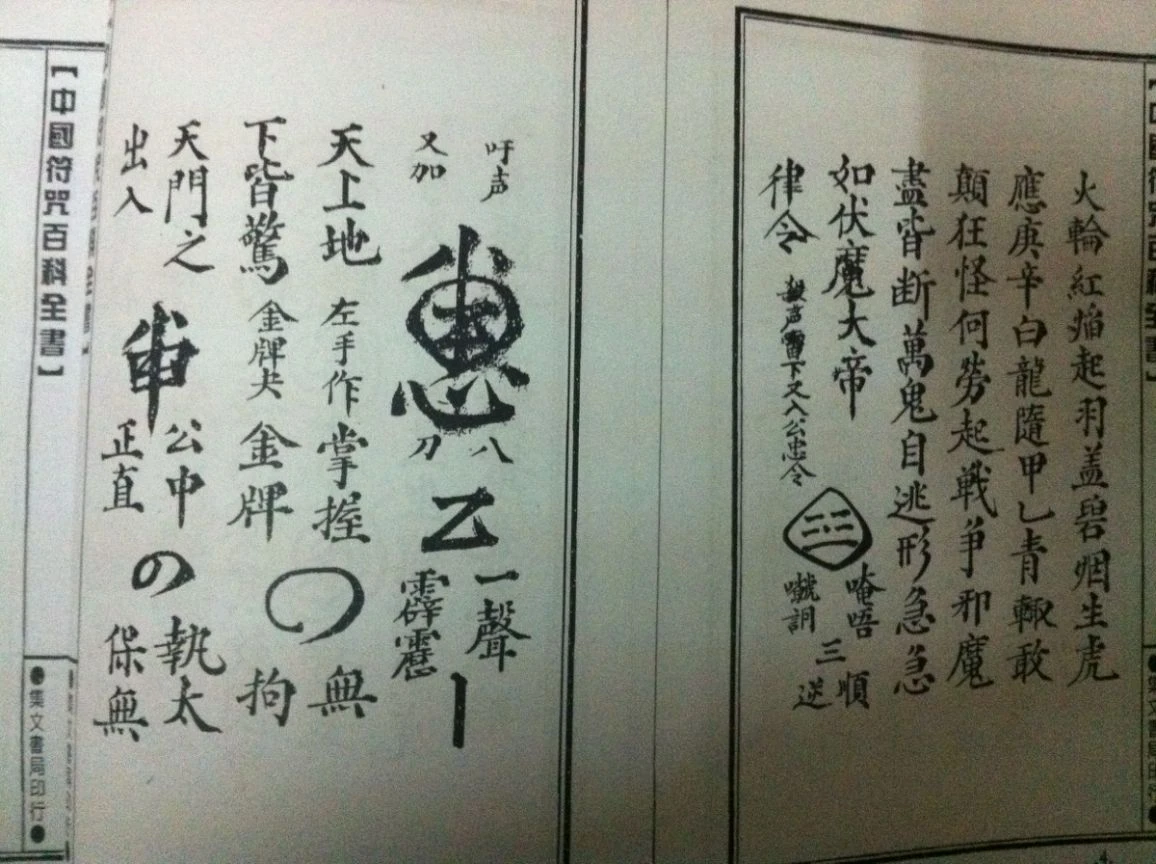 火輪紅焰起羽盖碧烟生虎
應庚辛白龍隨甲乙青輙敢
顛狂怪何勞起戰爭邪魔
盡皆断萬鬼自逃形急急
如伏魔大帝
律令
声雷下又入公忠令
唵唔
嘯詗
三
順
逆
吁声
又加
八
刀
乙
一聲
霹靂
天上地
左手作掌握
無
下皆驚
金牌夬
金牌
拘
天門之
公中
執太
出入
正直
保無
【中國符咒百科全書】
●集文書局印行●